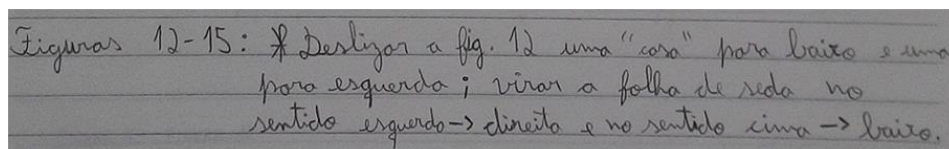 Figuras 12-15: * Deslizar a fig. 12 uma "casa" para baixo e uma
para esquerda; virar a folha de seda no
sentido esquerdo -> direita e no sentido cima -> baixo.